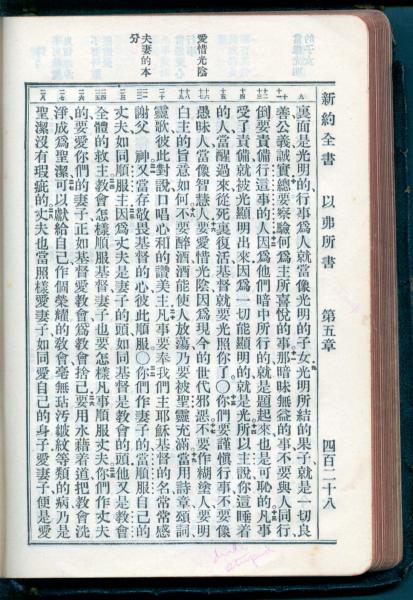 新約全書 以弗所書 第五章 四百二十八
裏面是光明的行事爲人就當像光明的子女光明所結的果子就是一切良
善公義誠實總要察驗何爲主所喜悅的事那暗昧無益的事不要與人同行
倒要責備行這事的人因爲他們暗中所行的就是題起來也是可恥的凡事
受了責備就被光顯明出來因爲一切能顯明的就是光所以主說你這睡着
的人當醒過來從死裏復活基督就要光照你了○你們要謹慎行事不要像
愛惜光陰
愚昧人當像智慧人要愛惜光陰因爲現今的世代邪惡不要作糊塗人要明
白主的旨意如何不要醉酒酒能使人放蕩乃要被聖靈充滿當用詩章頌詞
靈歌彼此對說口唱心和的讚美主凡事要奉我們主耶穌基督的名常常感
夫妻的本
分
謝父　神又當存敬畏基督的心彼此順服○你們作妻子的當順服自己的
丈夫如同順服主因爲丈夫是妻子的頭如同基督是教會的頭他又是教會
全體的救主教會怎樣順服基督妻子也要怎樣凡事順服丈夫你們作丈夫
的要愛你們的妻子正如基督愛教會爲教會捨己要用水藉着道把教會洗
淨成爲聖潔可以獻給自己作個榮耀的教會毫無玷污皺紋等類的病乃是
聖潔沒有瑕疵的丈夫也當照樣愛妻子如同愛自己的身子愛妻子便是愛